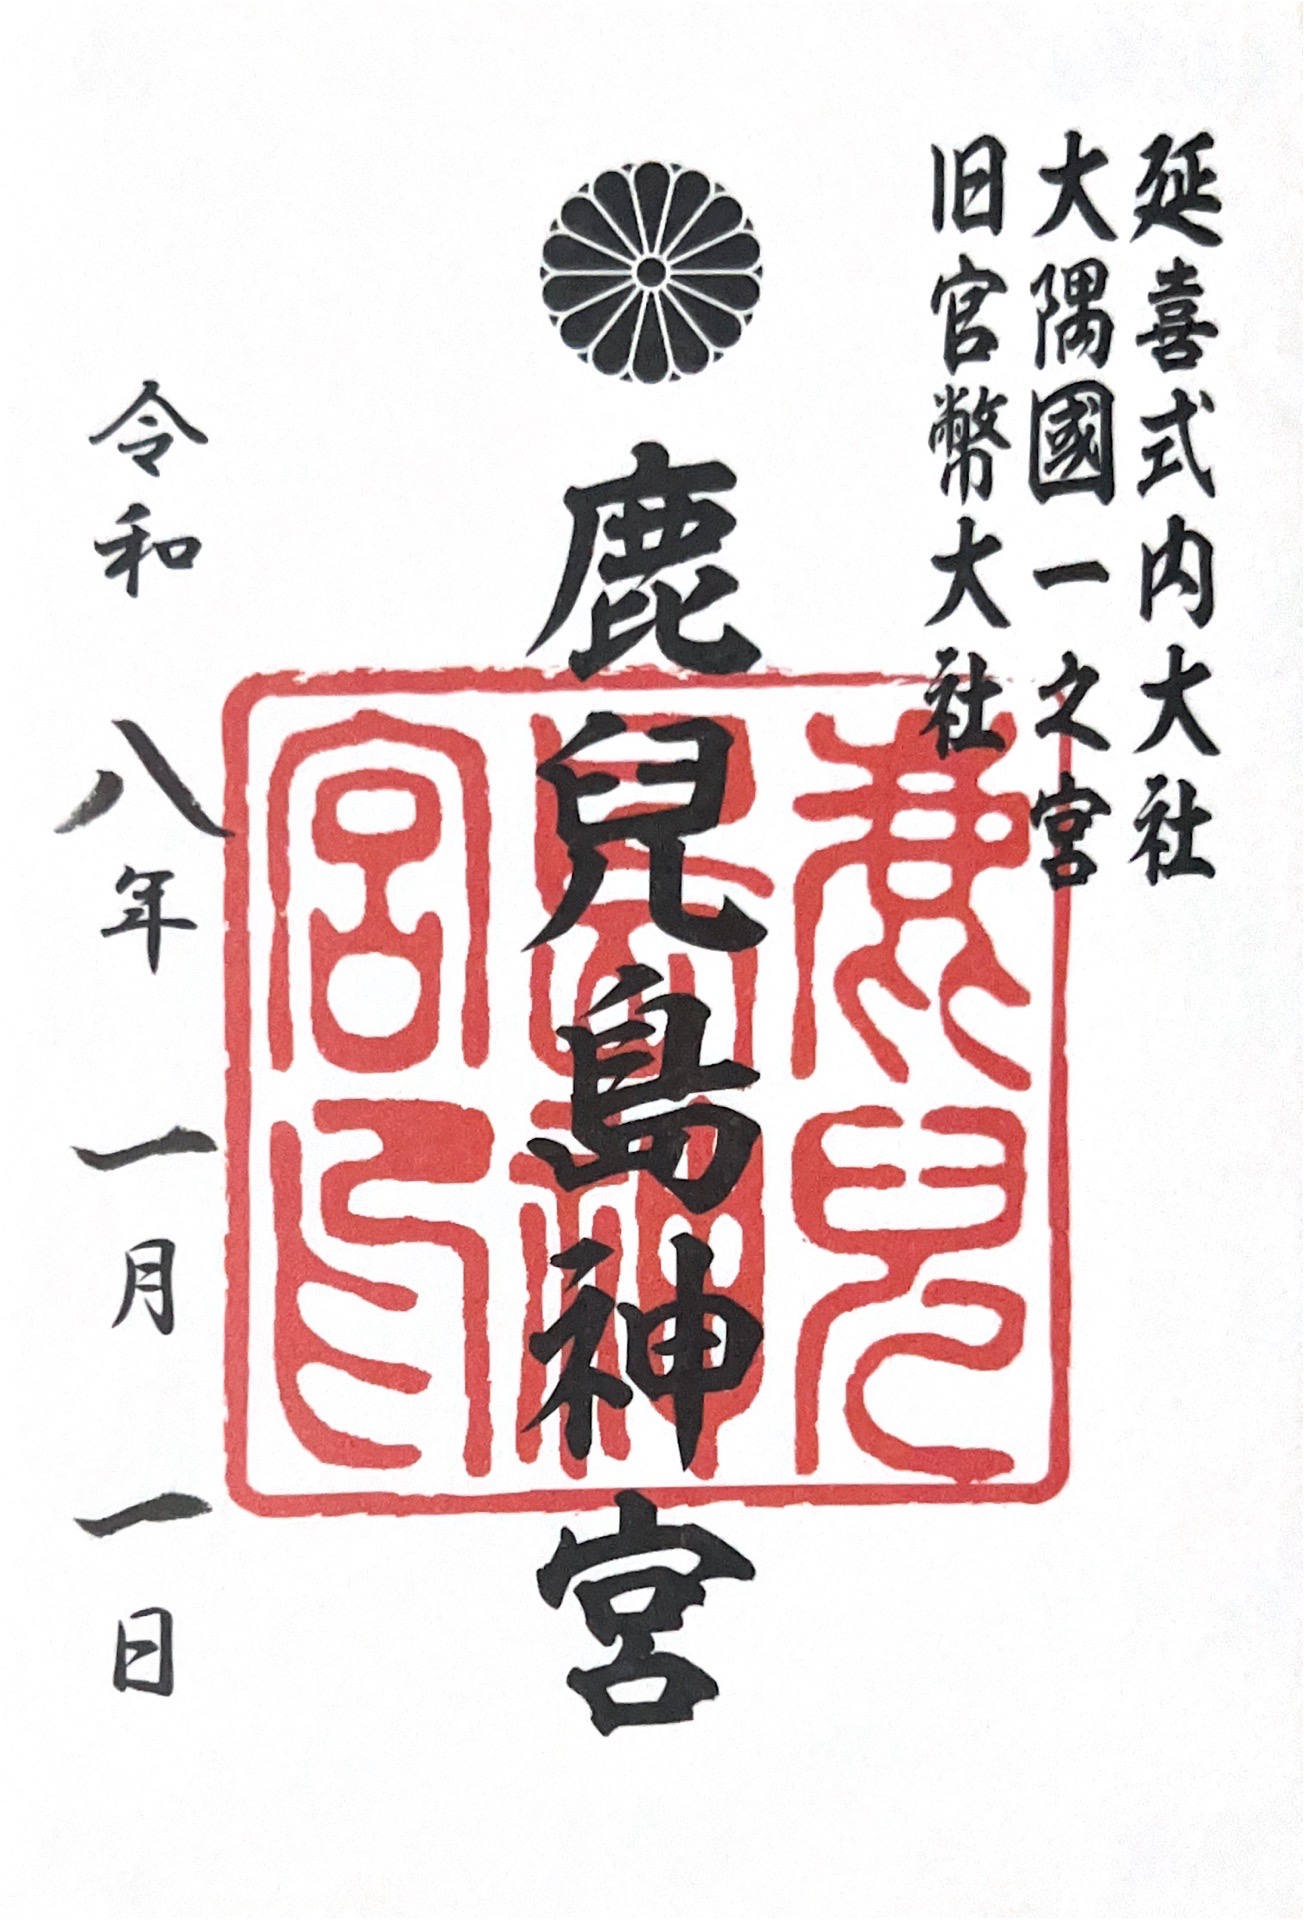 延喜式内大社
大隅國一之宮
旧官幣大社
鹿兒島神宮
鹿兒島神宮印
令和八年一月一日